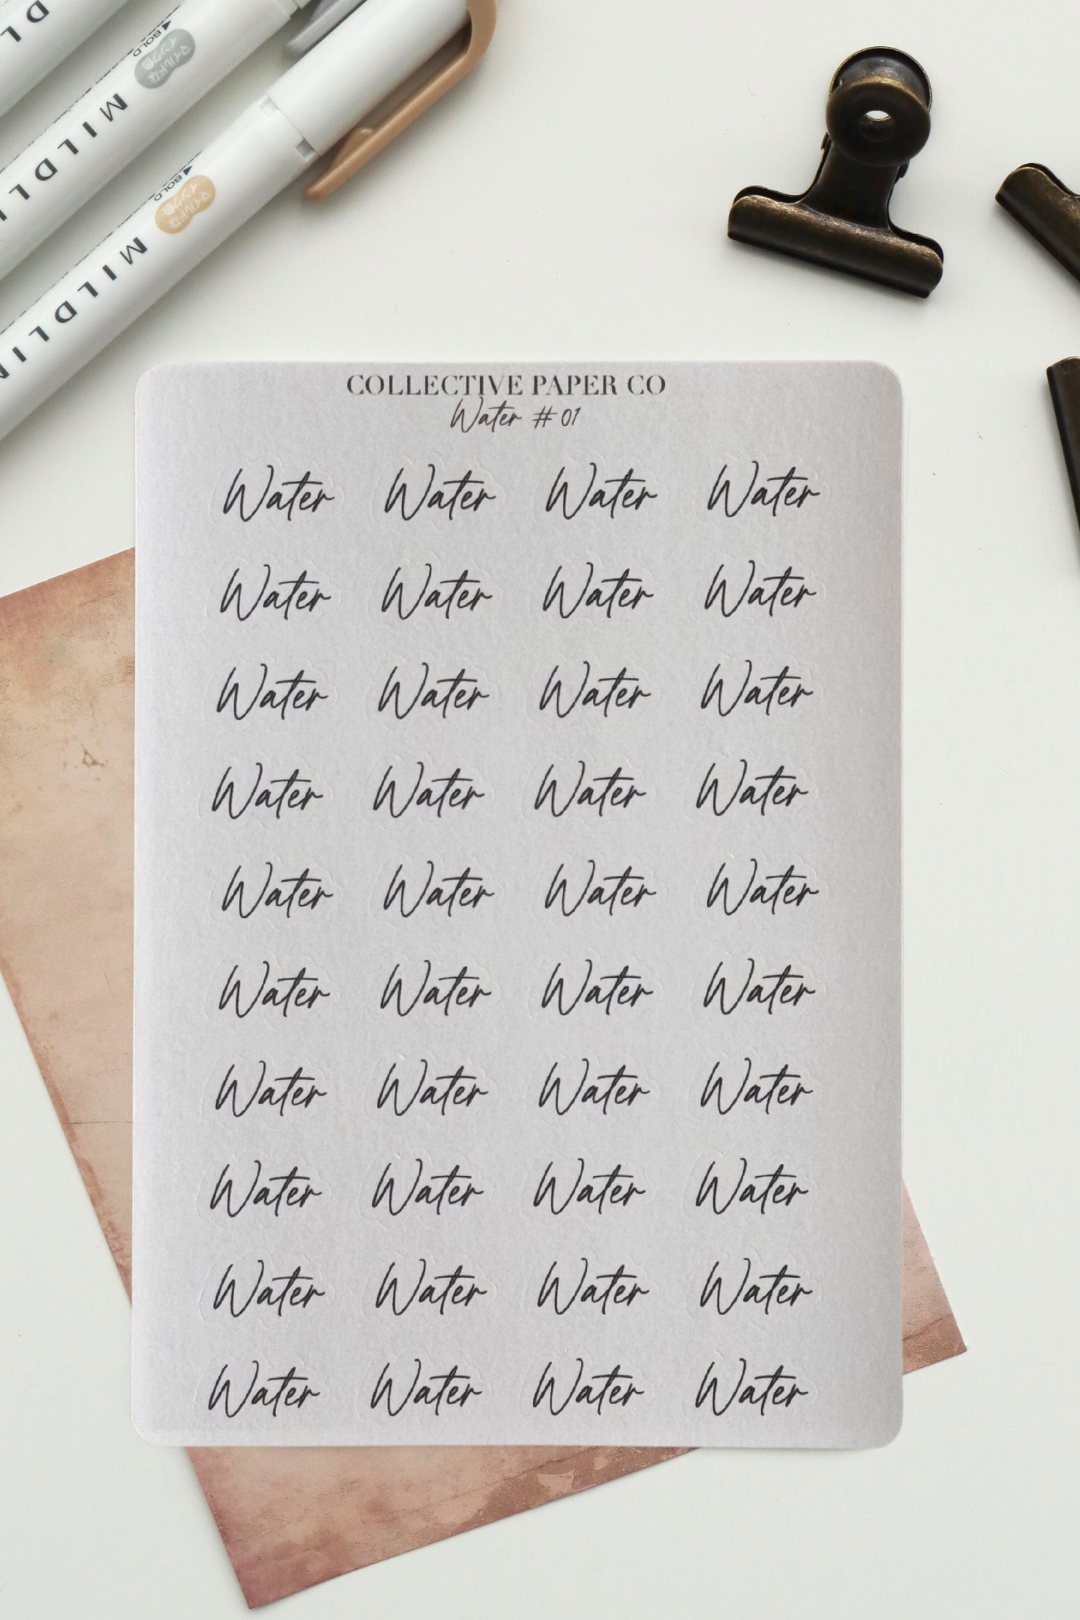 DL
BOLD
マイルドな
インク色
MILDLI
BOLD
マイルドな
インク色
MILDLIN
COLLECTIVE PAPER CO
Water #01
Water Water Water Water
Water Water Water Water
Water Water Water Water
Water Water Water Water
Water Water Water Water
Water Water Water Water
Water Water Water Water
Water Water Water Water
Water Water Water Water
Water Water Water Water